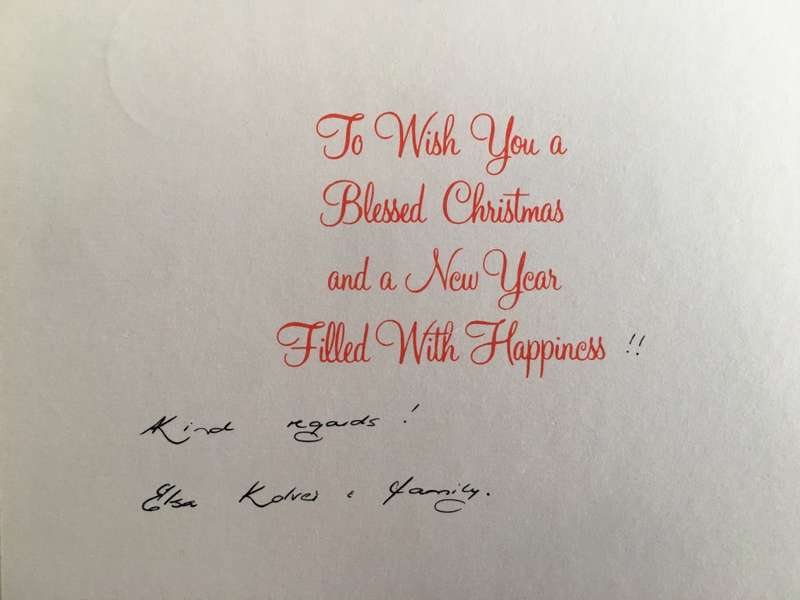 To Wish You a
Blessed Christmas
and a New Year
Filled With Happiness !!
Kind regards !
Elsa & family.